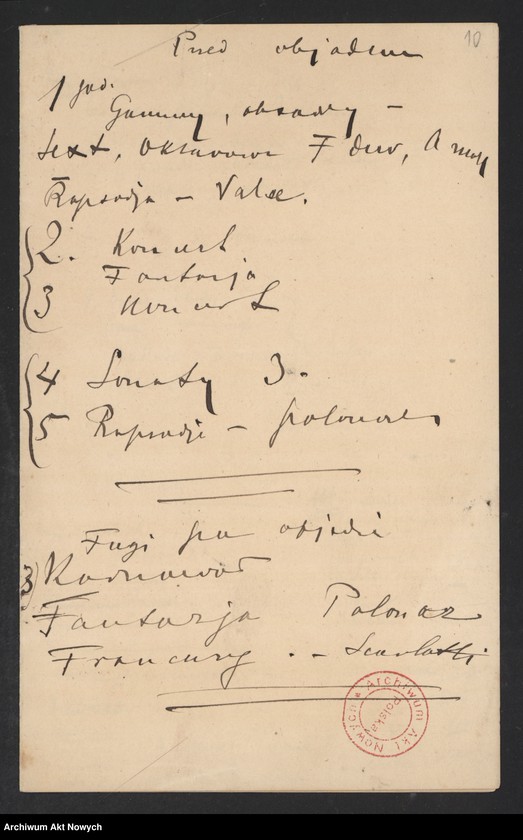 Przed objadem
10
1 god.
Gammy, oktawy –
sext, oktawowa F dur, A moll
Rapsodja – Valse.
2. Koncert
Fantazja
3 Koncert
4 Sonaty 3.
5 Rapsodje – polonaise
Fugi po objedie
3) Karnawał
Fantazja Polonez
Francuzy . – Scarlatti
Archiwum Akt Nowych
Polska
Archiwum Akt Nowych